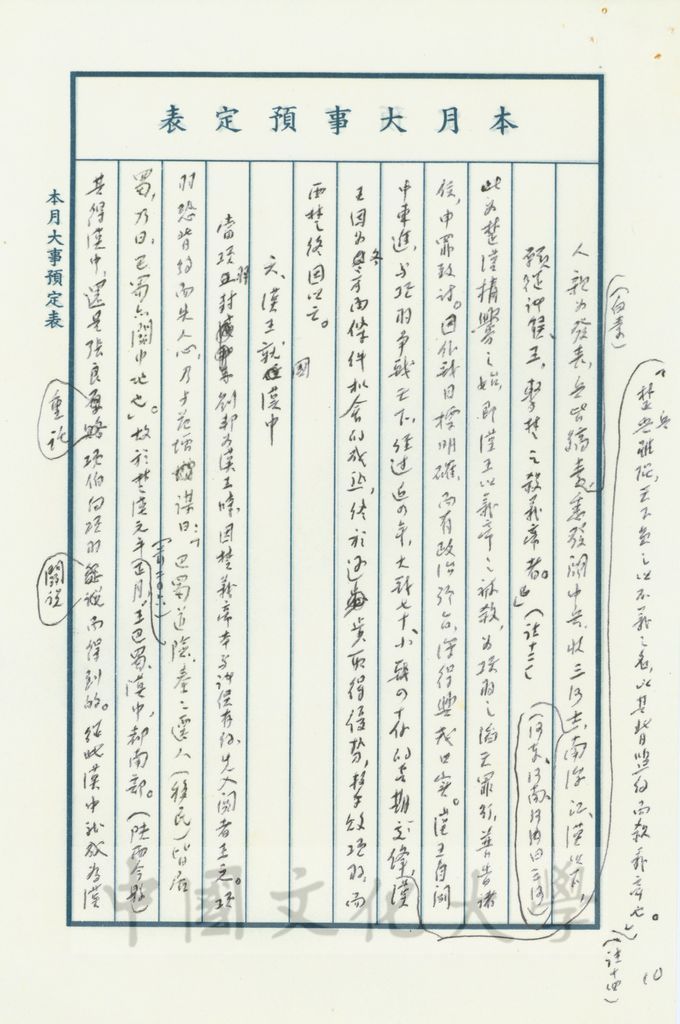 本月大事預定表
人親為發表,兵皆縞素,悉發關中兵,收三河士,南浮江漢以下,
(白素)
願從諸侯王,擊楚之殺義帝者。」(註十三)
(河東、河南、河內曰三河)
「楚兵雖強,天下負之以不義之名,以其背盟約而殺義帝也。」(註十四)
10
此為楚漢構釁之始,即漢王以義帝之被殺,為項羽之滔天罪行,普告諸
侯,申罪致討。因作戰目標明確,而有政治號召,深得興戎口實。漢王自關
中東進,與項羽爭戰天下,經過近四年,大戰七十,小戰四十餘的長期交鋒,漢
王因為具有兩條件機會的成熟,終於逐漸取得優勢,擊敗項羽,而
西楚終因以亡。
國
六、漢王就國漢中
當項羽封劉邦為漢王時,因楚義帝本與諸侯有約,先入關者王之。項
羽恐背約而失人心,乃與范增謀曰:「巴蜀道險,秦之遷人(移民)皆居
蜀,乃曰,巴蜀亦關中地也」。故於楚漢元年正月,王巴蜀、漢中,都南鄭。(陝西今縣)
(前二〇六)
其得漢中,還是張良厚賂項伯向項羽說而得到的。從此漢中就成為漢
重託
關說
本月大事預定表
中國文化大學